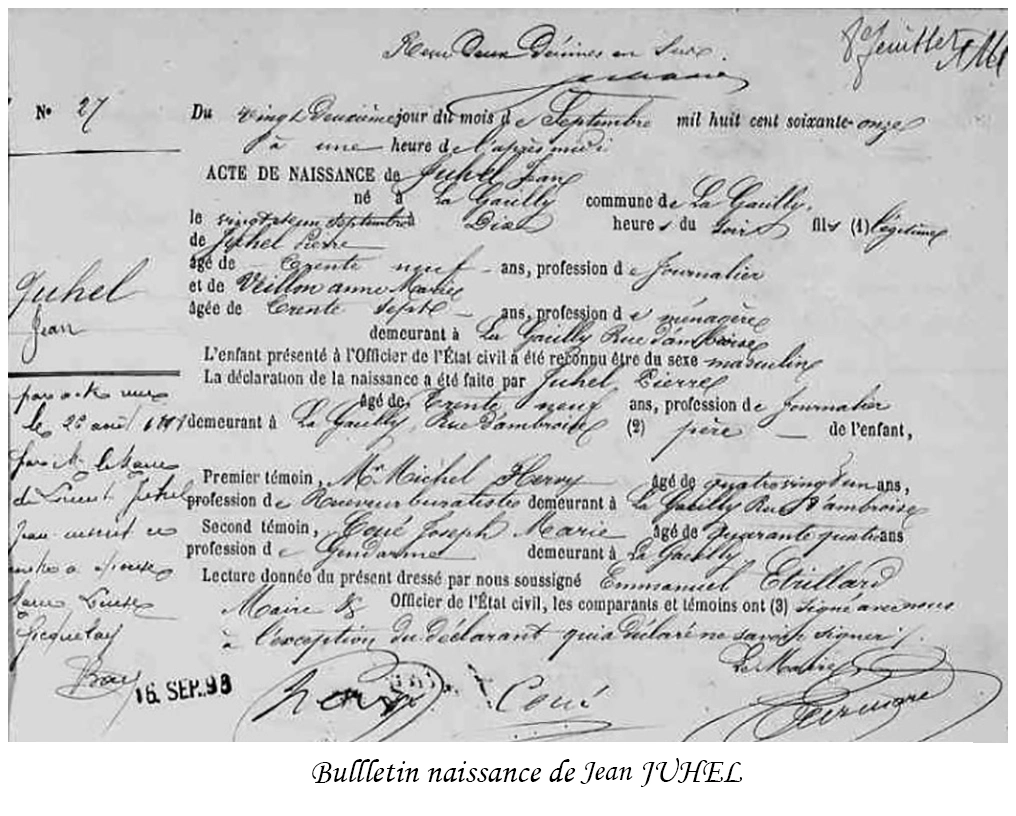 Reçu deux Décimes en Sus.
8e feuillet
N° 27
Du vingt Deuxième jour du mois de Septembre mil huit cent soixante-onze
à une heure de l'après midi
ACTE DE NAISSANCE de Juhel Jean
né à La Gacilly commune de La Gacilly,
le vingt et un septembre Dix heures du soir fils (1) légitime
de Juhel Pierre
âgé de Trente neuf ans, profession de Journalier
et de Veillon anne Marie
âgée de Trente sept ans, profession de ménagère
demeurant à La Gacilly Rue d'ambroise
L'enfant présenté à l'Officier de l'État civil a été reconnu être du sexe masculin
La déclaration de la naissance a été faite par Juhel Pierre
âgé de Trente neuf ans, profession de Journalier
demeurant à La Gacilly, Rue d'ambroise (2) père de l'enfant,
Premier témoin, Mr Michel Hervy âgé de quatrevingt un ans,
profession de Receveur buraliste demeurant à La Gacilly Rue d'ambroise
Second témoin, Coué Joseph Marie âgé de Quarante quatre ans
profession de Gendarme demeurant à La Gacilly
Lecture donnée du présent dressé par nous soussigné Emmanuel Etrillard
Maire & Officier de l'État civil, les comparants et témoins ont (3) signé avec nous
à l'exception du déclarant qui a déclaré ne savoir signer /.
Le Maire
Coué
Juhel
Jean
par acte
le 22 août
par M. le Maire
de Lorient Juhel
Jean inscrit ci
contre a épousé
Marie Louise
16. SEP. 98
Bullletin naissance de Jean JUHEL